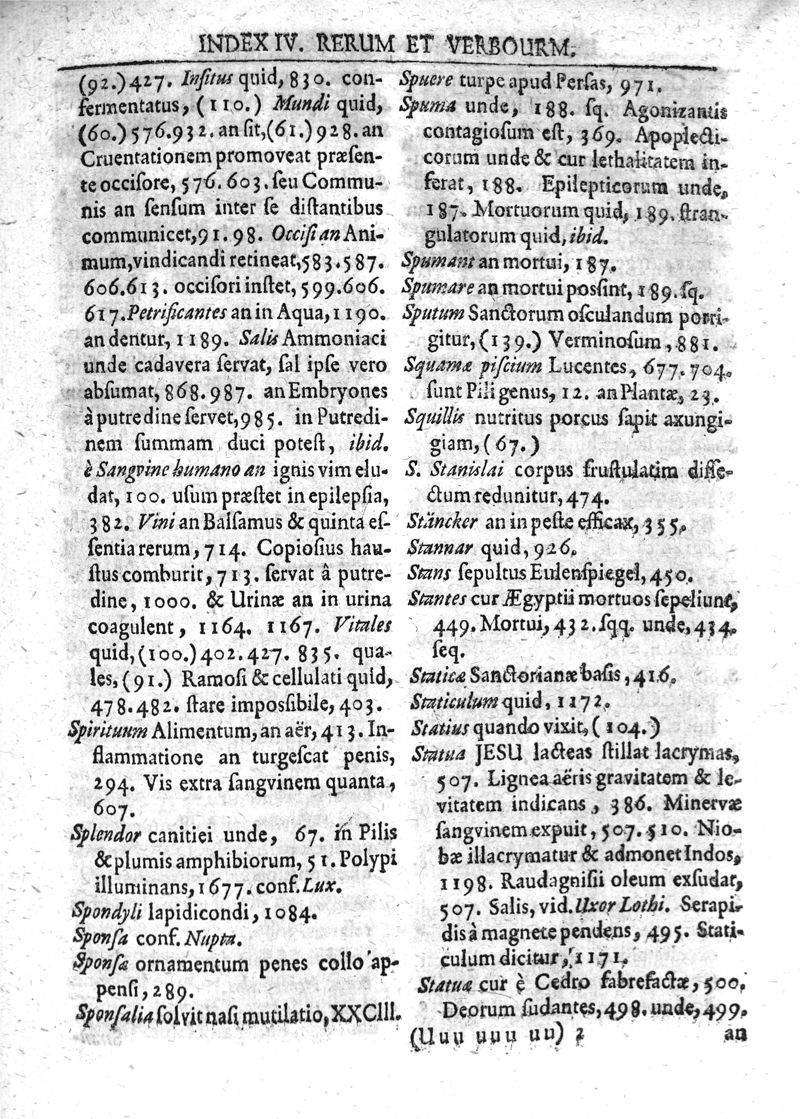 INDEX IV. RERUM ET VERBOURM.
(92.) 427. Inſitus quid, 830. con-
fermentatus, (110.) Mundi quid,
(60.) 576.932. an ſit, (61.) 928. an
Cruentationem promoveat præſen-
te occiſore, 576. 603. ſeu Commu-
nis an ſenſum inter ſe diſtantibus
communicet, 91. 98. Occiſi an Ani-
mum, vindicandi retineat, 583.587.
606.613. occiſori inſtet, 599.606.
617. Petrificantes an in Aqua, 1190.
an dentur, 1189. Salis Ammoniaci
unde cadavera ſervat, ſal ipſe vero
abſumat, 868.987. an Embryones
à putredine ſervet, 985. in Putredi-
nem ſummam duci poteſt, ibid.
è Sangvine humano an ignis vim elu-
dat, 100. uſum præſtet in epilepſia,
382. Vini an Balſamus & quinta eſ-
ſentia rerum, 714. Copioſius hau-
ſtus comburit, 713. ſervat â putre-
dine, 1000. & Urinæ an in urina
coagulent, 1164. 1167. Vitales
quid, (100.) 402.427. 835. qua-
les, (91.) Ramoſi & cellulati quid,
478.482. ſtare impoſſibile, 403.
Spirituum Alimentum, an aër, 413. In-
flammatione an turgeſcat penis,
294. Vis extra ſangvinem quanta,
607.
Splendor canitiei unde, 67. in Pilis
& plumis amphibiorum, 51. Polypi
illuminans, 1677. conf. Lux.
Spondyli lapidicondi, 1084.
Sponſa conf. Nupta.
Sponſæ ornamentum penes collo ap-
penſi, 289.
Sponſalia ſolvit naſi mutilatio, XXCIII.
Spuere turpe apud Perſas, 971.
Spuma unde, 188. ſq. Agonizantis
contagioſum eſt, 369. Apoplecti-
corum unde & cur lethalitatem in-
ferat, 188. Epilepticorum unde,
187. Mortuorum quid, 189. ſtran-
gulatorum quid, ibid.
Spumant an mortui, 187.
Spumare an mortui poſſint, 189. ſq.
Sputum Sanctorum oſculandum porri-
gitur, (139.) Verminoſum, 881.
Squamæ piſcium Lucentes, 677.704.
ſunt Pili genus, 12. an Plantæ, 23.
Squillis nutritus porcus ſapit axungi-
giam, (67.)
S. Stanislai corpus fruſtulatim diſſe-
ctum redunitur, 474.
Stäncker an in peſte efficax, 355.
Stannar quid, 926.
Stans ſepultus Eulenſpiegel, 450.
Stantes cur Ægyptii mortuos ſepeliunt,
449. Mortui, 432. ſqq. unde, 434.
ſeq.
Staticæ Sanctorianæ baſis, 416.
Staticulum quid, 1172.
Statius quando vixit, (104.)
Statua JESU lacteas ſtillat lacrymas,
507. Lignea aëris gravitatem & le-
vitatem indicans, 386. Minervæ
ſangvinem expuit, 507.510. Nio-
bæ illacrymatur & admonet Indos,
1198. Raudagniſii oleum exſudat,
507. Salis, vid. Uxor Lothi. Serapi-
dis à magnete pendens, 495. Stati-
culum dicitur, 1171.
Statuæ cur è Cedro fabrefactæ, 500.
Deorum ſudantes, 498. unde, 499.
(Uuu uuu uu) 2 an